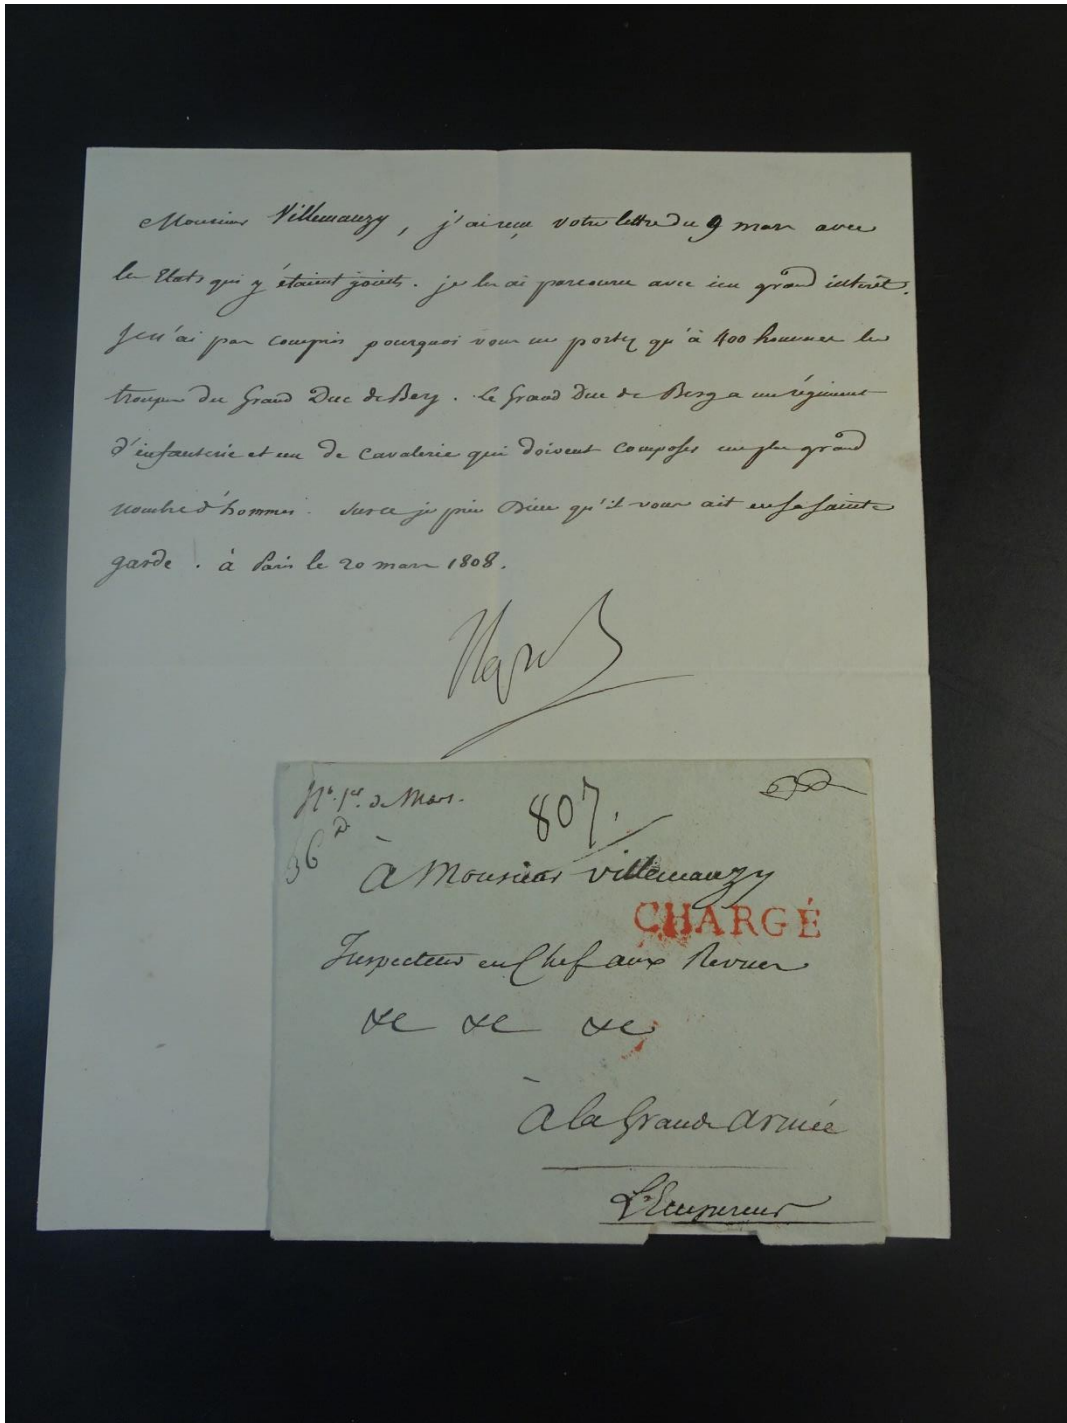 Monsieur Villemanzy, j'ai reçu votre lettre du 9 mars avec
les Etats qui y étaient joints. je les ai parcourus avec un grand intérêt.
Je n'ai pas compris pourquoi vous ne portez qu'à 400 hommes les
troupes du Grand Duc de Berg. Le Grand Duc de Berg a un régiment
d'infanterie et un de cavalerie qui doivent composer un plus grand
nombre d'hommes. Sur ce je prie Dieu qu'il vous ait en sa sainte
garde. à Paris le 20 mars 1808.
Napol
N.o 1er. de Mars.
807.
36
à Monsieur Villemanzy
CHARGÉ
Inspecteur en Chef aux Revues
&c &c &c
à la Grande Armée
L'Empereur